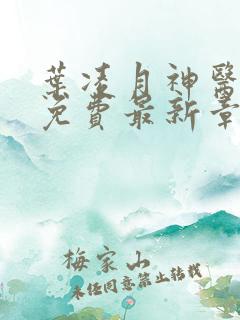 葉凌月神醫
免費最新章
梅家山
未经同意禁止转载